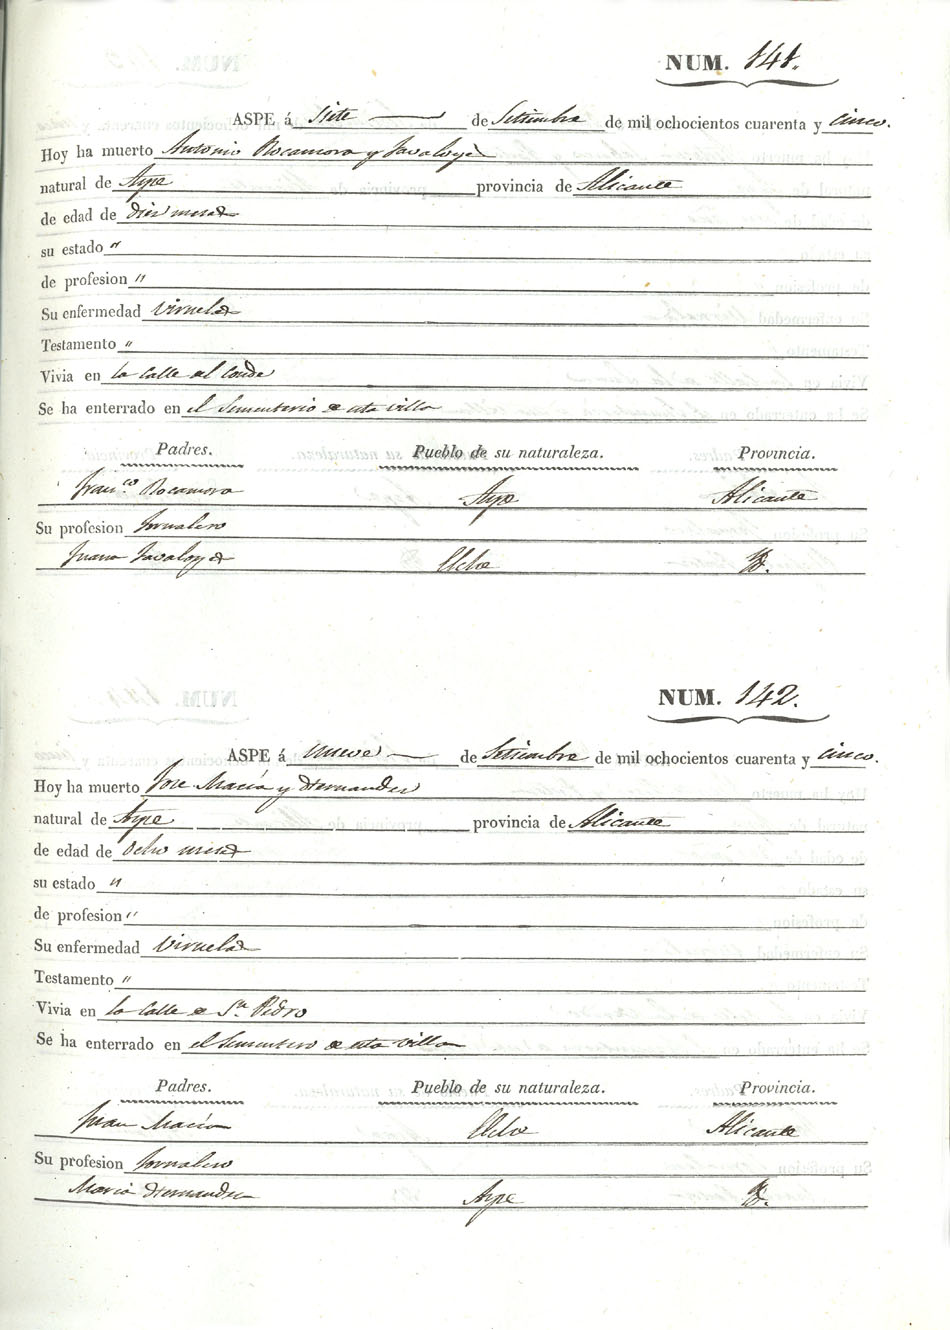 NUM. 141.
ASPE á siete de Setiembre de mil ochocientos cuarenta y cinco.
Hoy ha muerto Antonio Rocamora y Javaloyes
natural de Aspe provincia de Alicante
de edad de diez meses
su estado "
de profesion "
Su enfermedad Viruelas
Testamento "
Vivia en la Calle del Conde
Se ha enterrado en el Sementerio de esta villa
Padres. Pueblo de su naturaleza. Provincia.
Fran.co Rocamora Aspe Alicante
Su profesion Jornalero
Juana Javaloyes Elche Yd.
NUM. 142.
ASPE á nueve de Setiembre de mil ochocientos cuarenta y cinco.
Hoy ha muerto Jose Maciá y Hernandez
natural de Aspe provincia de Alicante
de edad de Ocho meses
su estado "
de profesion "
Su enfermedad Viruelas
Testamento "
Vivia en la Calle de Sn Pedro
Se ha enterrado en el Sementero de esta villa
Padres. Pueblo de su naturaleza. Provincia.
Juan Maciá Elche Alicante
Su profesion Jornalero
Maria Hernandez Aspe Yd.